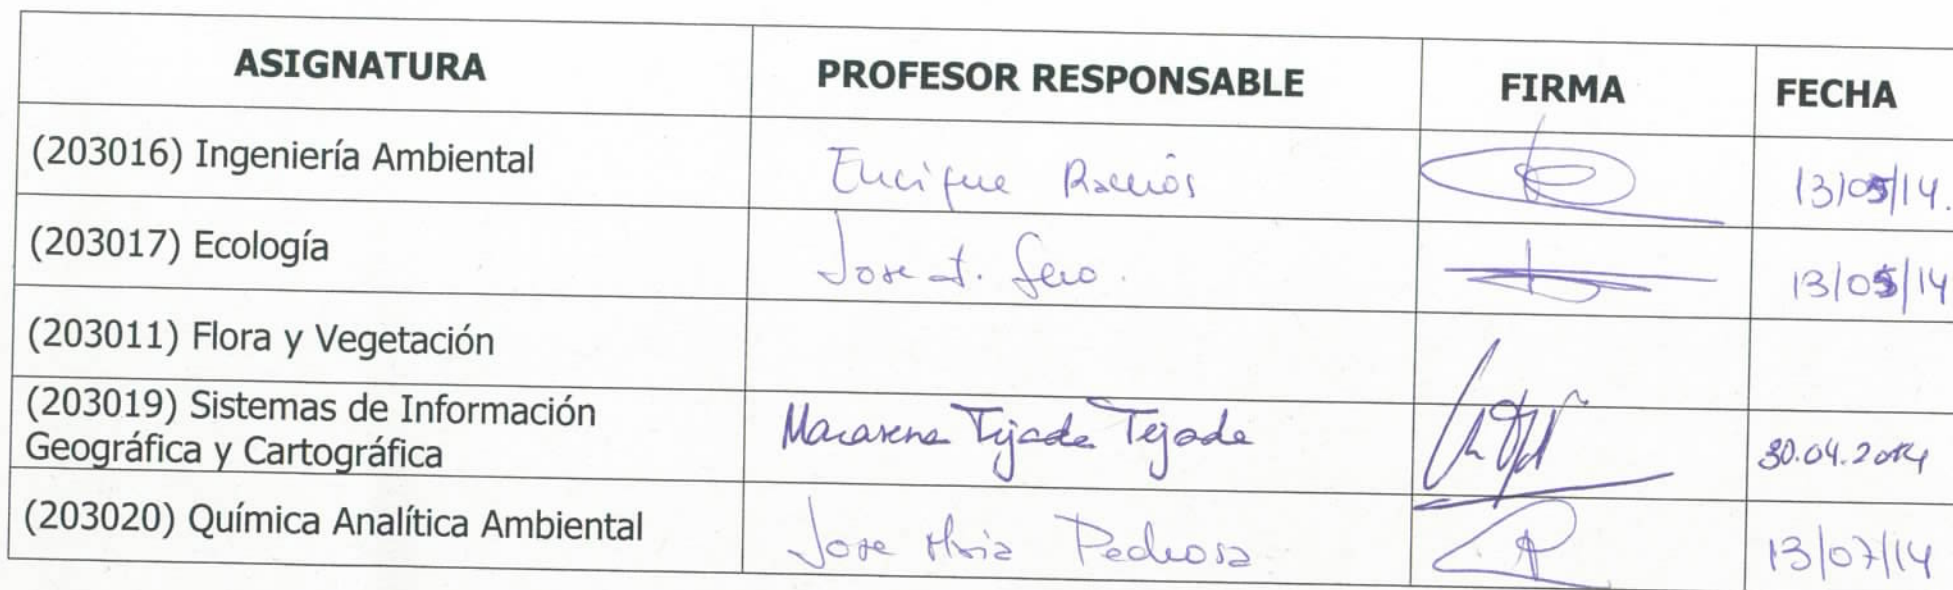 ASIGNATURA PROFESOR RESPONSABLE FIRMA FECHA
(203016) Ingeniería Ambiental Enrique Ramos 13/05/14.
(203017) Ecología Jose 13/05/14
(203011) Flora y Vegetación
(203019) Sistemas de Información
Geográfica y Cartográfica Macarena Tejada Tejada 30.04.2014
(203020) Química Analítica Ambiental Jose Mria Pedrosa 13/07/14